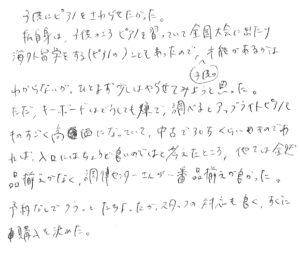 子供にピアノをさわらせたかった。
私自身は、子供のころピアノを習っていて全国大会に出たり
海外留学をする(ピアノの)こともあったので、才能があるかは
子供の
わからないが、ひとまず少しはやらせてみようと思った。
ただ、キーボードはどうしても嫌で、調べるとアップライトピアノも
ものすごく高価になっていて、中古で30万くらいのものであ
れば、入口にはちょうど良いのではと考えたところ、他では全然
品揃えがなく、調律センターさんが一番品揃えが良かった。
予約なしでフラッと立ちよったが、スタッフの対応も良く、すぐに
購入を決めた。